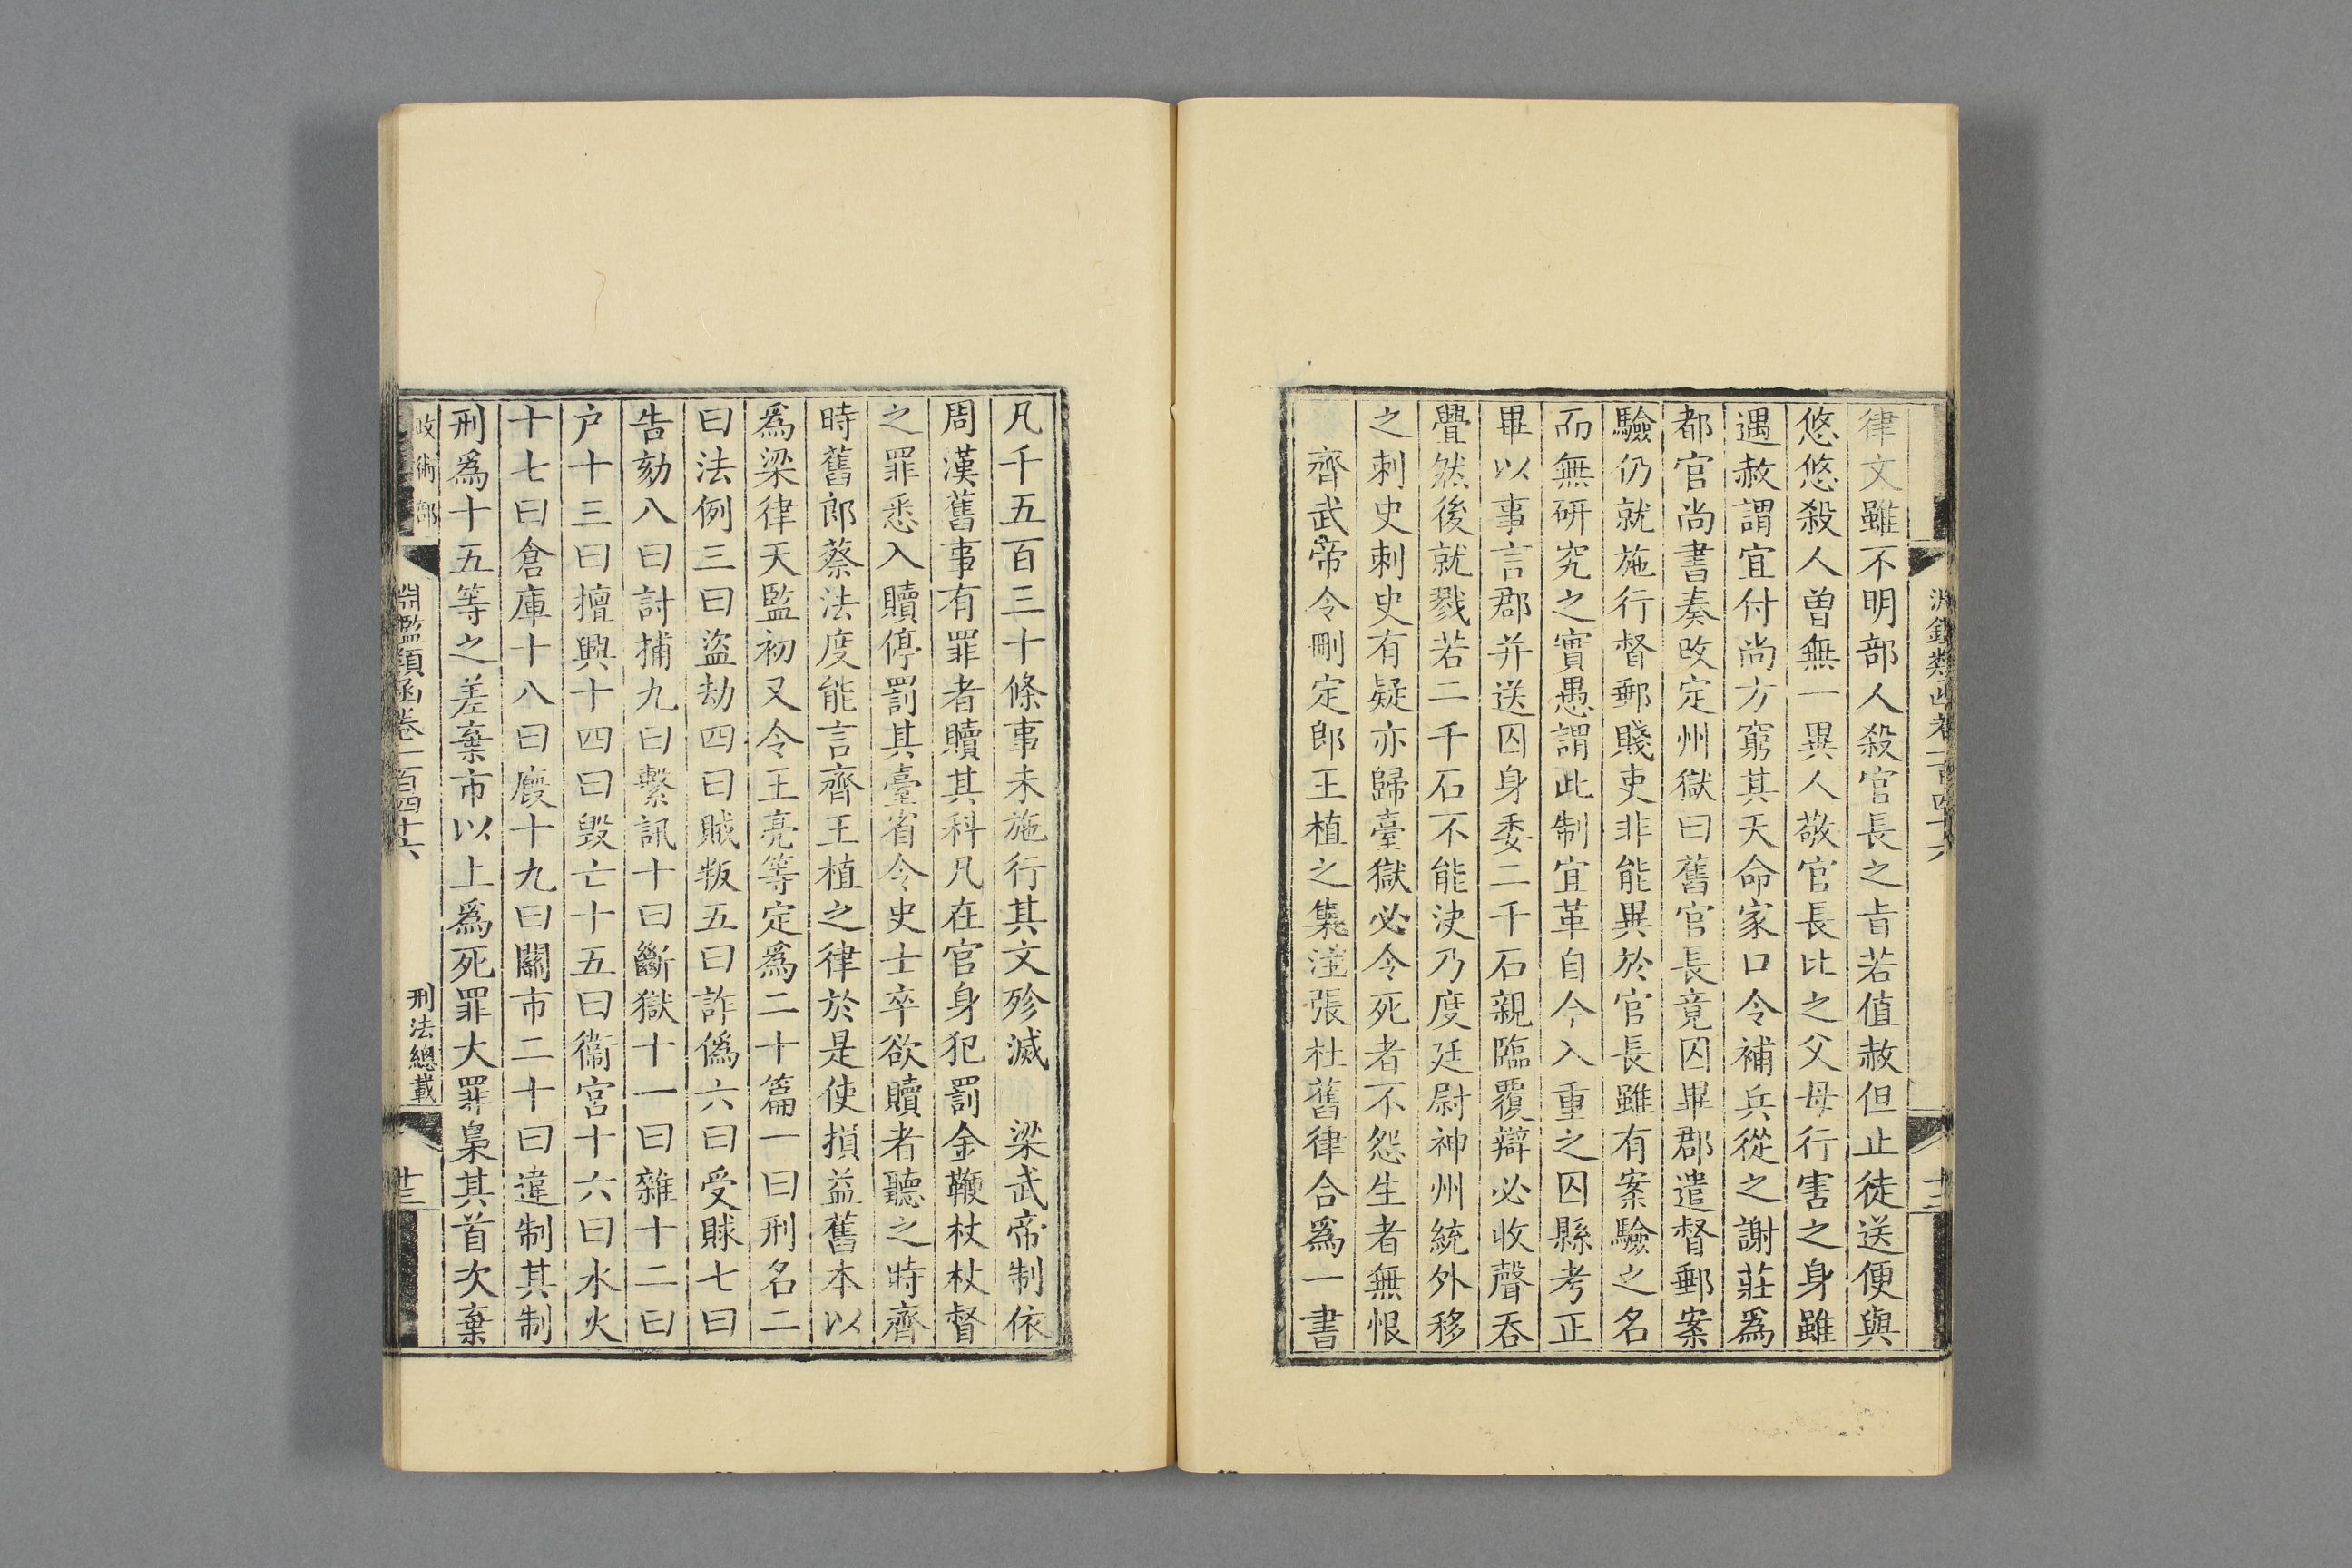 律文雖不明部人殺官長之㫖若值赦但止徒送便與
悠悠殺人曽無一異人敬官長比之父母行害之身雖
遇赦謂宜付尚方窮其天命家口令補兵從之謝莊爲
都官尚書奏改定州獄曰舊官長竟囚畢郡遣督郵案
驗仍就施行督郵賤吏非能異於官長雖有案驗之名
而無研究之實愚謂此制宜革自今入重之囚縣考正
畢以事言郡并送囚身委二千石親臨覆辯必收聲吞
舋然後就戮若二千石不能決乃度廷尉神州統外移
之刺史刺史有疑亦歸臺獄必令死者不怨生者無恨
齊武帝令刪定郎王植之集注張杜舊律合爲一書
凡千五百三十條事未施行其文殄滅　梁武帝制依
周漢舊事有罪者贖其科凡在官身犯罰金鞭杖杖督
之罪悉入贖停罰其臺省令史士卒欲贖者聽之時齊
時舊郎蔡法度能言齊王植之律於是使損益舊本以
爲梁律天監初又令王亮等定爲二十篇一曰刑名二
曰法例三曰盜劫四曰賊叛五曰詐僞六曰受賕七曰
告劾八曰討捕九曰繫訊十曰斷獄十一曰雜十二曰
户十三曰擅興十四曰毀亡十五曰衞宮十六曰水火
十七曰倉庫十八曰廄十九曰關市二十曰違制其制
刑爲十五等之差棄市以上爲死罪大罪梟其首次棄
政術部　淵鑑類函卷二百四十六　刑法總載　十三